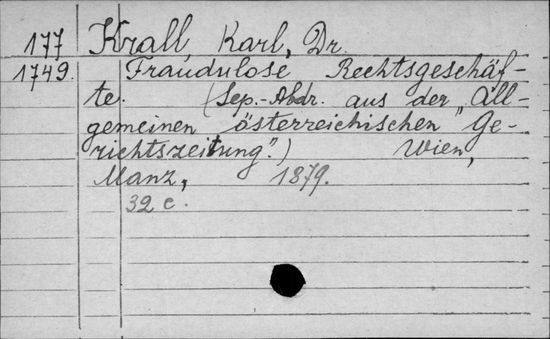 177 Krall, Karl, Dr.
1749. Fraudulose Rechtsgeschäf-
te. (Sep.-Abdr. aus der „All-
gemeinen österreichischen Ge-
richtszeitung".) Wien,
Manz, 1879.
32 c.